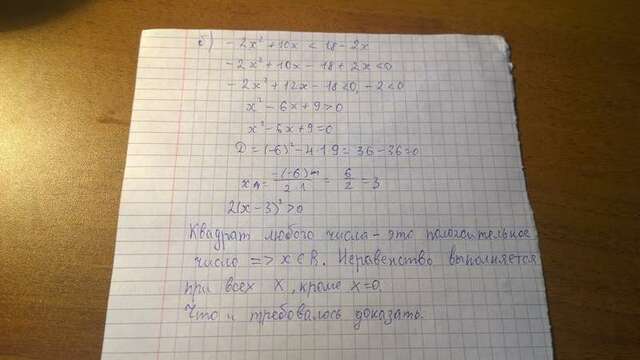 б) -2x² + 10x < 18 - 2x
-2x² + 10x - 18 + 2x < 0
-2x² + 12x - 18 < 0, -2 < 0
x² - 6x + 9 > 0
x² - 6x + 9 = 0
D = (-6)² - 4·1·9 = 36 - 36 = 0
x = -(-6) / 2·1 = 6/2 = 3
2(x - 3)² > 0
Квадрат любого числа - это положительное
число => x ∈ R. Неравенство выполняется
при всех x, кроме x = 0.
Что и требовалось доказать.